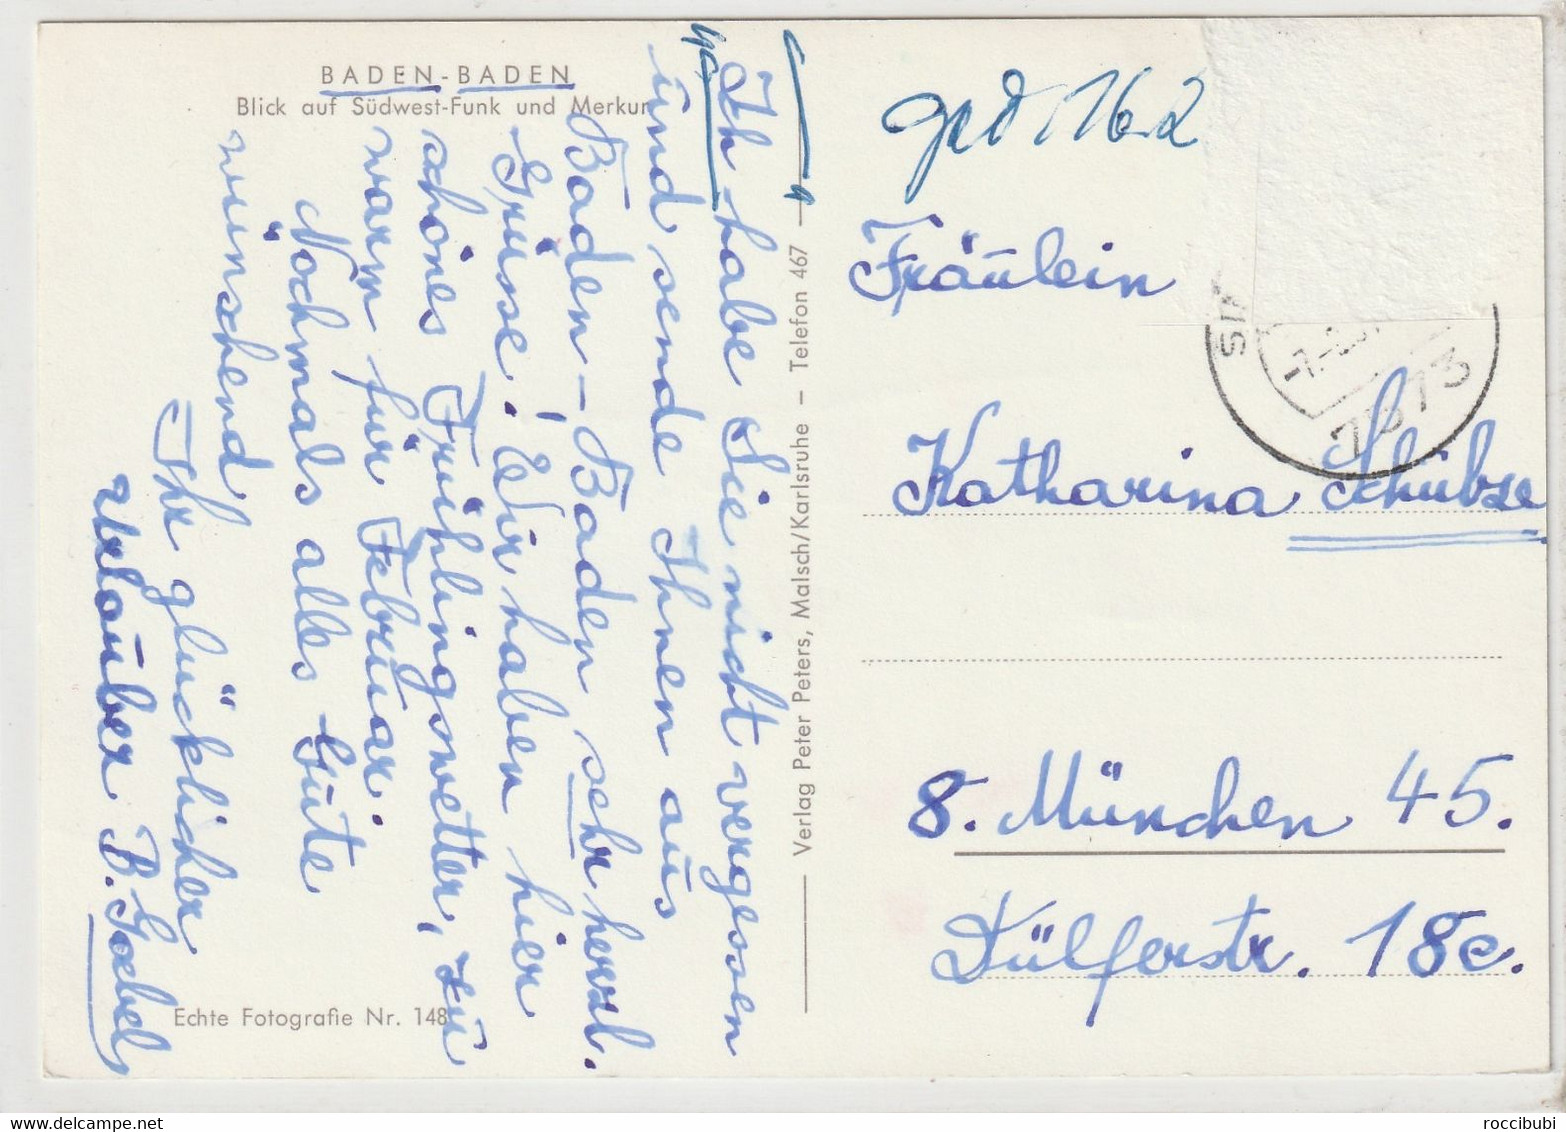 BADEN-BADEN
Blick auf Südwest-Funk und Merkur
Ich habe Sie nicht vergessen
und sende Ihnen aus
Baden-Baden sehr herzl.
Grüsse! Wir haben hier
schönes Frühlingswetter, zu
warm für Februar.
Nochmals alles Gute
wünschend
Ihr glücklicher
Urlauber B. Goebel
Echte Fotografie Nr. 148
Verlag Peter Peters, Malsch/Karlsruhe – Telefon 467
162
Fräulein
Katharina Schübze
8. München 45.
Dülferstr. 18c.
7573
www.delcampe.net
roccibubi